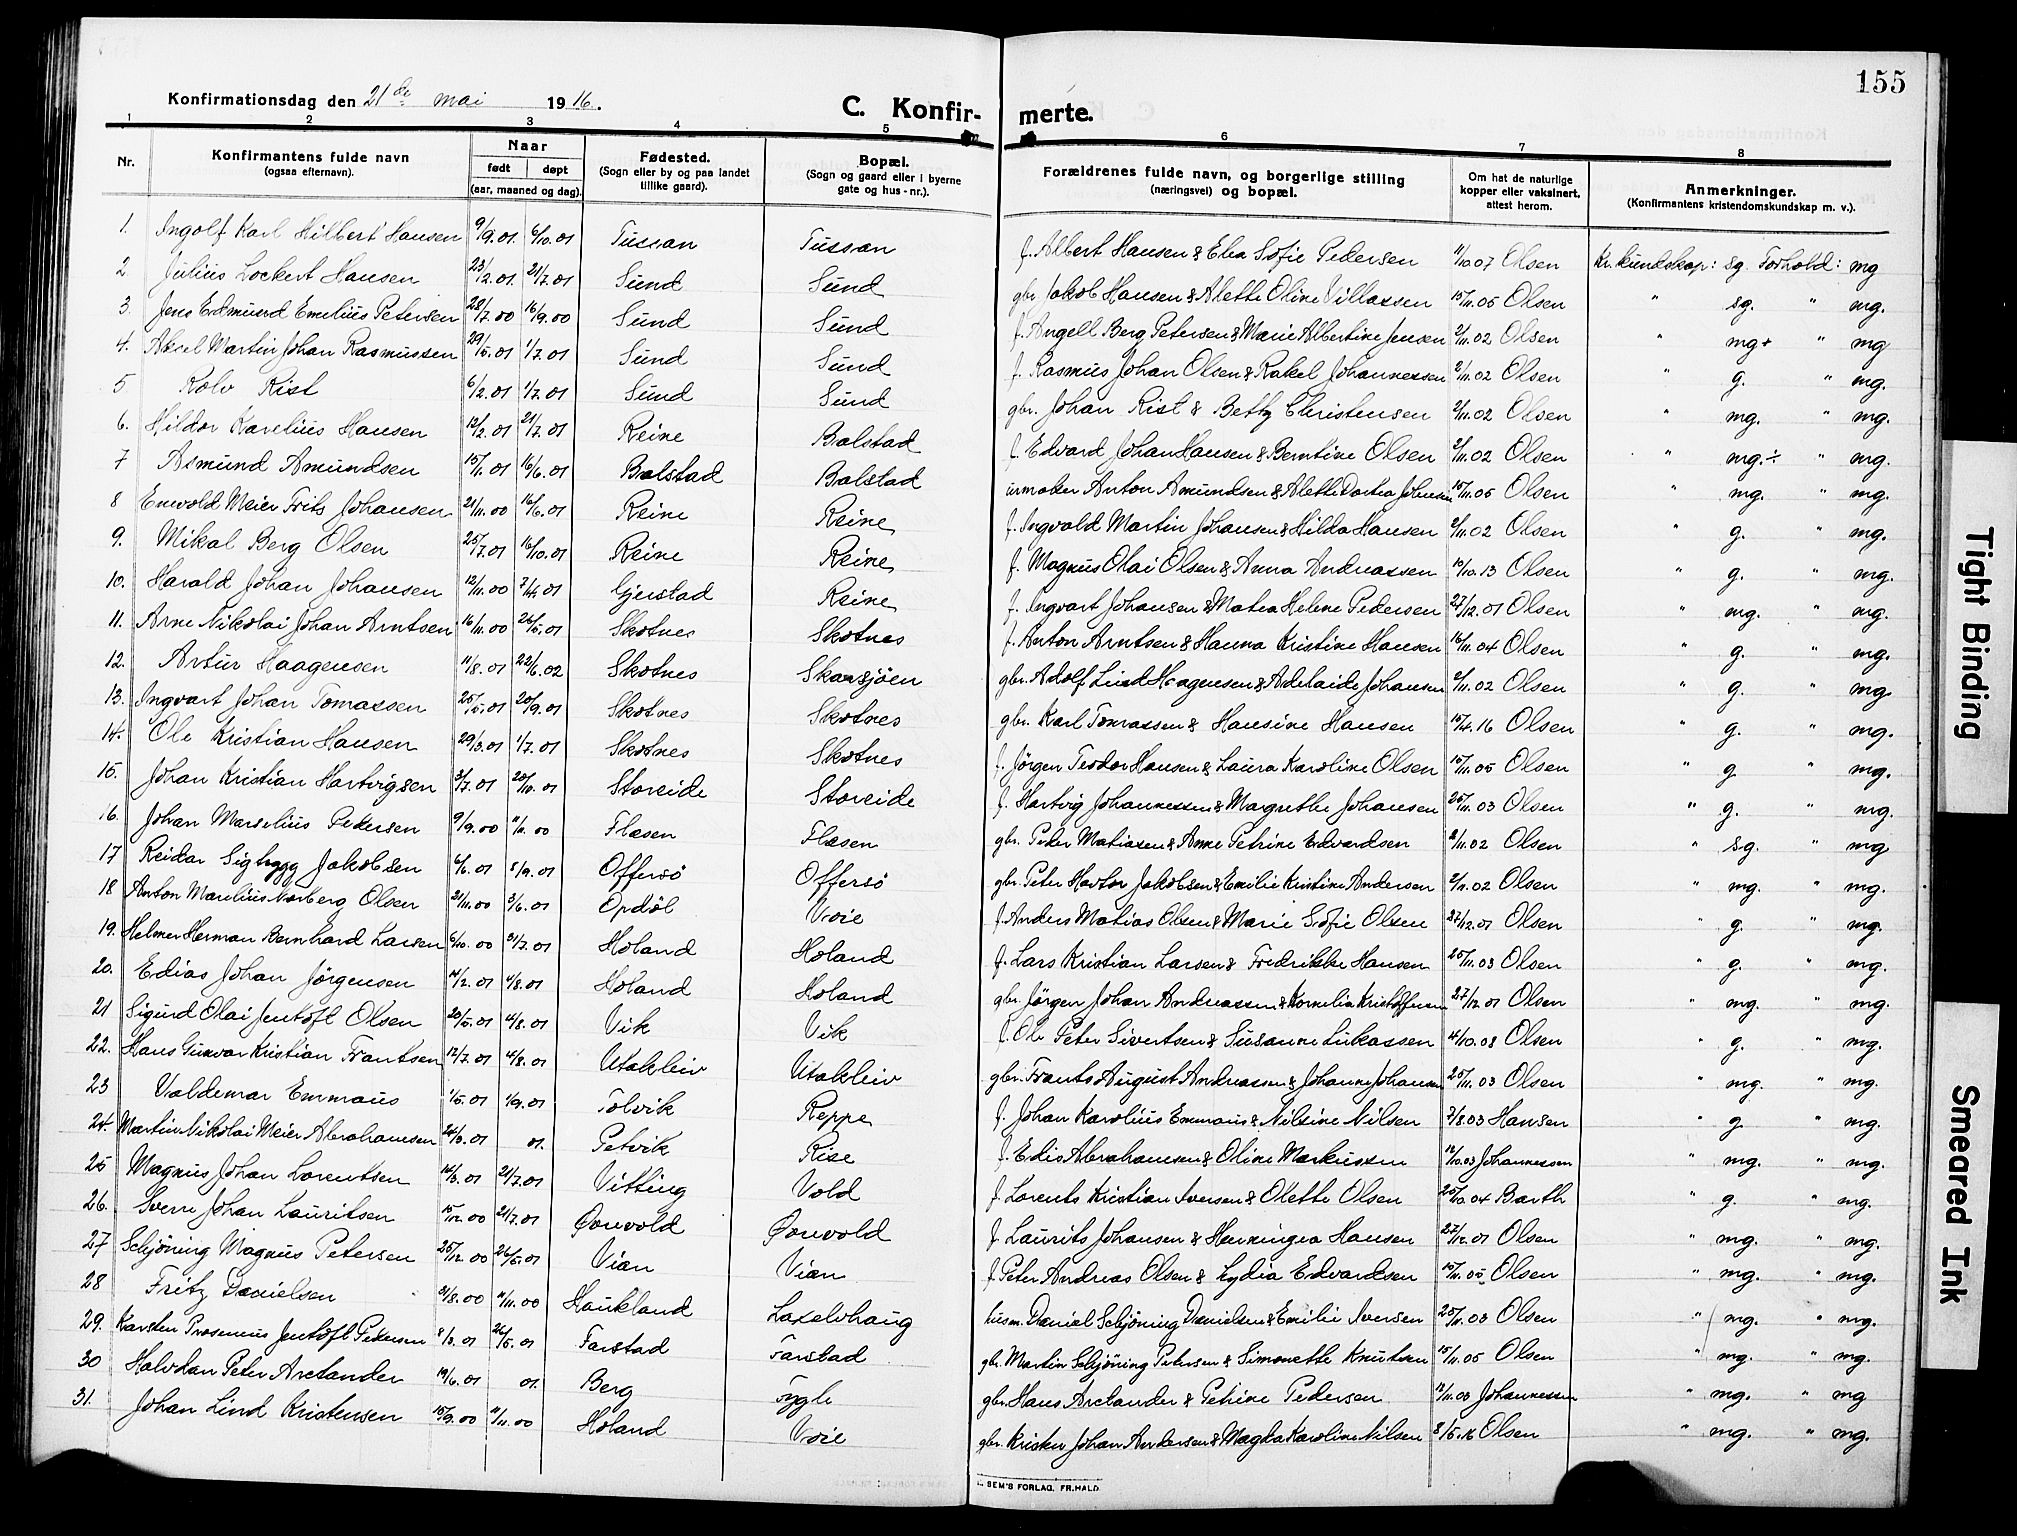 155
Konfirmationsdag den 21de mai 1916.
C. Konfir- merte.
1 2 3 4 5 6 7 8
Nr.
Konfirmantens fulde navn
(ogsaa efternavn).
Naar
født døpt
(aar, maaned og dag).
Fødested.
(Sogn eller by og paa landet
tillike gaard).
Bopæl.
(Sogn og gaard eller i byerne
gate og hus-nr.).
Forældrenes fulde navn, og borgerlige stilling
(næringsvei) og bopæl.
Om hat de naturlige
kopper eller vaksinert,
attest herom.
Anmerkninger.
(Konfirmantens kristendomskundskap m. v.).
1. Ingolf Karl Hilbert Hansen 9/9.01. 6/10.01 Tussan Tussan f. Albert Hansen & Elea Sofie Pedersen 11/10.07 Olsen Kr. kundskap: sg. Forhold: mg
2. Julius Lockert Hansen 23/2.01. 21/7.01 Sund Sund gbr. Jakob Hansen & Alette Oline Villassen 15/11.05 Olsen " sg. " mg.
3. Jens Edmund Emelius Petersen 28/7.00 16/9.00 Sund Sund f. Angell Berg Petersen & Marie Albertine Jensen 2/11.02 Olsen " mg+ " mg
4. Aksel Martin Johan Rasmussen 29/5.01 1/7.01 Sund Sund f. Rasmus Johan Olsen & Rakel Johannessen 2/11.02 Olsen " g. " mg.
5 Rolv Rist 6/2.01 1/7.01 Sund Sund gbr. Johan Rist & Betty Christensen 2/11.02 Olsen " mg. " mg.
6. Hildor Karelius Hansen 12/2.01 21/7.01 Reine Balstad f. Edvard Johan Hansen & Berntine Olsen 2/11.02 Olsen " mg.÷ " mg.
7 Asmund Amundsen 15/1.01 16/6.01 Balstad Balstad urmaker Anton Amundsen & Alette Dortea Johansen 15/11.05 Olsen " mg. " mg.
8 Enevold Meier Frits Johansen 21/11.00 16/6.01 Reine Reine f. Ingvald Martin Johansen & Hilda Hansen 2/11.02 Olsen " g. " mg.
9. Mikal Berg Olsen 25/7.01 16/10.01 Reine Reine f. Magnus Olai Olsen & Anna Andreassen 10/10.13 Olsen " g. " mg.
10. Harald Johan Johansen 12/11.00 7/4.01 Gjerstad Reine f. Ingvart Johansen & Matea Helene Pedersen 27/12.01 Olsen " mg. " mg.
11. Arne Nikolai Johan Arntsen 16/11.00 26/5.01 Skotnes Skotnes f. Anton Arntsen & Hanna Kristine Hansen 16/11.04 Olsen " g. " mg.
12. Artur Haagensen 11/8.01 22/6.02 Skotnes Skarsjöen gbr. Adolf Lind Haagensen & Adelaide Johansen 2/11.02 Olsen " g. " mg
13. Ingvart Johan Tomassen 25/5.01 20/9.01 Skotnes Skotnes gbr. Karl Tomassen & Hansine Hansen 15/4.16 Olsen " g. " mg.
14. Ole Kristian Hansen 29/3.01 1/7.01 Skotnes Skotnes f. Jörgen Teodor Hansen & Laura Karoline Olsen 15/11.05 Olsen " g " mg.
15. Johan Kristian Hartvigsen 3/7.01 20/10.01 Storeide Storeide f. Hartvig Johannessen & Magrethe Johansen 25/11.03 Olsen " g. " mg.
16. Johan Marselius Pedersen 9/9.00 11/11.00 Flæsen Flæsen gbr. Peder Matiasen & Anne Petrine Edvardsen 2/11.02 Olsen " sg. " mg
17 Reidar Sigtrygg Jakobsen 6/6.01 8/9.01 Offersö Offersö gbr. Peter Hartor Jakobsen & Emilie Kristine Andersen 2/11.02 Olsen " mg. " mg.
18 Anton Marelius Norberg Olsen 21/11.00 3/6.01 Opdöl Voie f. Anders Matias Olsen & Marie Sofie Olsen 27/12.01 Olsen " g. " mg.
19. Helmer Herman Bernhard Larsen 6/10.00 31/7.01 Holand Holand f. Lars Kristian Larsen & Fredrikke Hansen 25/11.03 Olsen " g. " mg.
20. Edias Johan Jörgensen 14/2.01 4/8.01 Holand Holand gbr. Jörgen Johan Andreassen & Kornelia Kristoffersen 27/12.01 Olsen " mg. " mg.
21 Sigurd Olai Jentoft Olsen 20/5.01 4/8.01 Vik Vik f. Ole Peter Sivertsen & Susanne Lukassen 4/10.08 Olsen " g. " mg.
22. Hans Gunvar Kristian Frantsen 12/7.01 4/8.01 Utakleiv Utakleiv gbr. Frants August Andreassen & Johanne Johansen 25/11.03 Olsen " mg. " mg.
23 Valdemar Emmaus 1/5.01 1/9.01 Tolvik Reppe f. Johan Karolius Emmaus & Nilsine Nilsen 7/8.03 Hansen " g. " mg.
24. Martin Nikolai Meier Abrahamsen 24/3.01 01. Petvik Rise f. Edis Abrahamsen & Oline Markussen 12/10.03 Johannessen " mg. " mg.
25 Magnus Johan Lorentsen 14/3.01 21/7.01 Vitting Vold f. Lorents Kristian Iversen & Olette Olsen 25/10.04 Barth " g. " mg.
26. Sverre Johan Lauritsen 15/12.00 21/7.01 Örnvold Örnvold f. Laurits Johansen & Henningea Hansen 27/12.01 Olsen " mg. " mg.
27 Schjöning Magnus Petersen 25/12.00 26/5.01 Vian Vian f. Peter Andreas Olsen & Lydia Edvardsen 15/11.05 Olsen " mg. " mg.
28 Fritz Danielsen 31/8.00 11/11.00 Haukland Laxelvhaug husm. Daniel Schjöning Danielsen & Emilie Iversen 25/11.03 Olsen " mg. " mg.
29. Karsten Prosenius Jentoft Pedersen 8/3.01 26/5.01 Farstad Farstad gbr. Martin Schjöning Petersen & Simonette Knutsen 15/11.05 Olsen " mg. " mg.
30 Halvdan Peter Arctander 19/6.01 01. Berg Fygle gbr. Hans Arctander & Petrine Pedersen 12/11.03 Johannessen " mg. " mg
31. Johan Lind Kristensen 15/9.00 11/11.00 Holand Voie gbr. Kristen Johan Andersen & Magda Karoline Nilsen 8/5.16 Olsen " mg. " mg.
SEM'S FORLAG, FR.HALD
Tight Binding
Smeared Ink